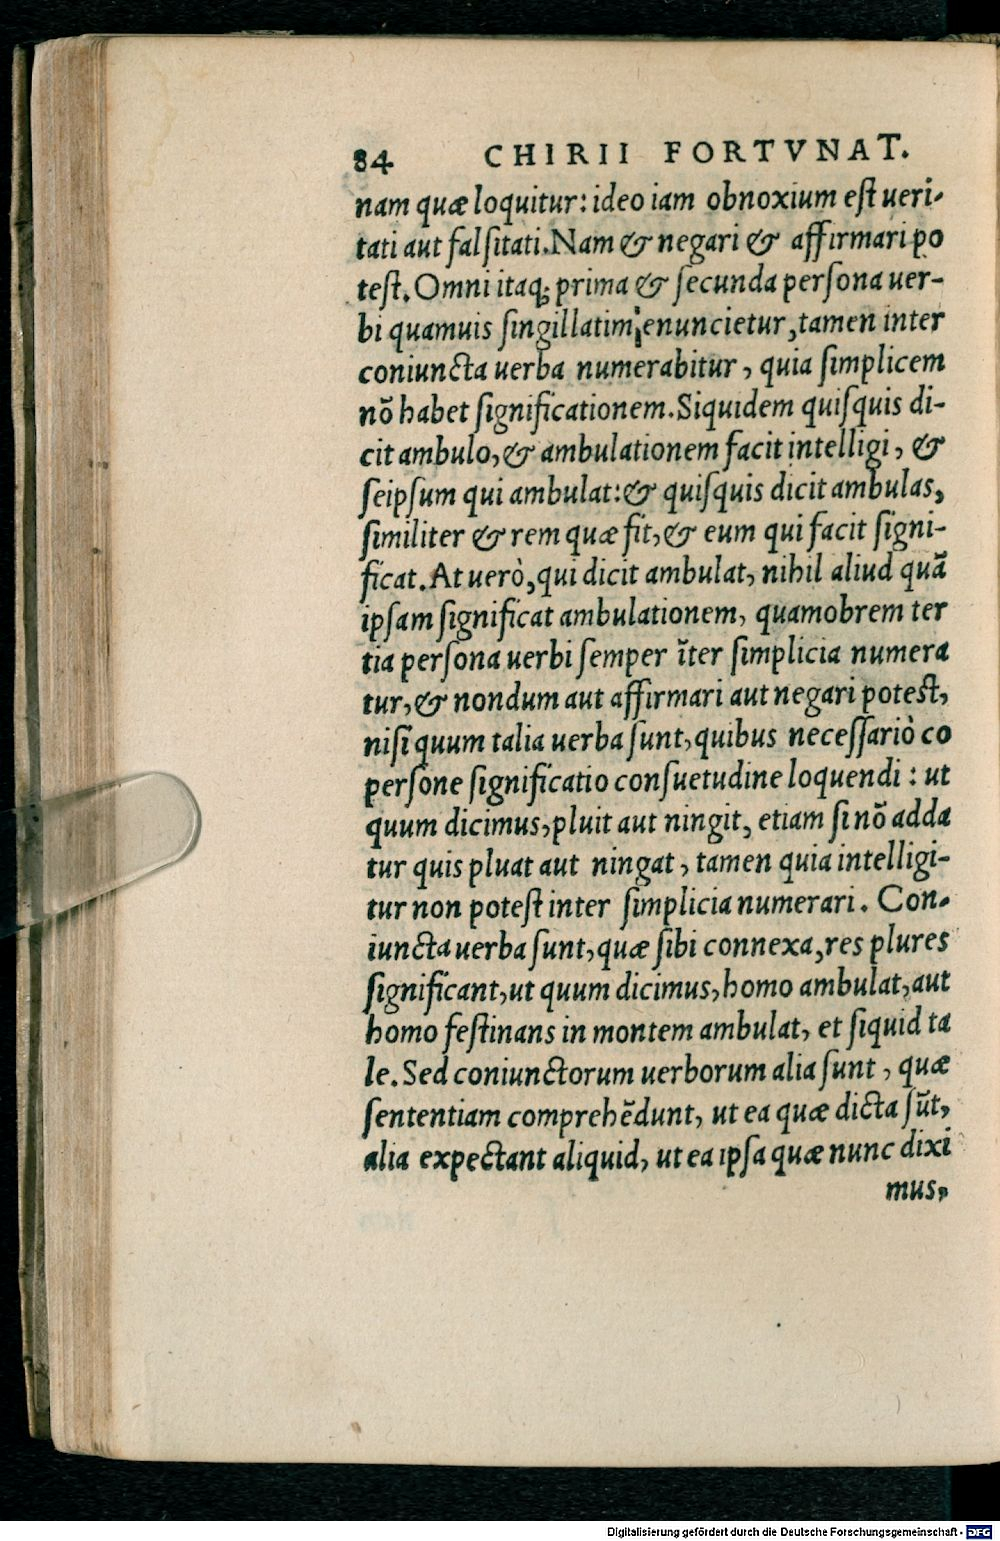 84 CHIRII FORTVNAT.
nam quæ loquitur: ideo iam obnoxium est ueri-
tati aut falsitati. Nam & negari & affirmari po
test. Omni itaq; prima & secunda persona uer-
bi quamuis singillatim enuncietur, tamen inter
coniuncta uerba numerabitur, quia simplicem
nõ habet significationem. Siquidem quisquis di-
cit ambulo, & ambulationem facit intelligi, &
seipsum qui ambulat: & quisquis dicit ambulas,
similiter & rem quæ fit, & eum qui facit signi-
ficat. At uerò, qui dicit ambulat, nihil aliud quã
ipsam significat ambulationem, quamobrem ter
tia persona uerbi semper ĩter simplicia numera
tur, & nondum aut affirmari aut negari potest,
nisi quum talia uerba sunt, quibus necessariò co
persone significatio consuetudine loquendi: ut
quum dicimus, pluit aut ningit, etiam si nõ adda
tur quis pluat aut ningat, tamen quia intelligi-
tur non potest inter simplicia numerari. Con-
iuncta uerba sunt, quæ sibi connexa, res plures
significant, ut quum dicimus, homo ambulat, aut
homo festinans in montem ambulat, et siquid ta
le. Sed coniunctorum uerborum alia sunt, quæ
sententiam comprehẽdunt, ut ea quæ dicta sũt,
alia expectant aliquid, ut ea ipsa quæ nunc dixi
mus,
Digitalisierung gefördert durch die Deutsche Forschungsgemeinschaft - DFG